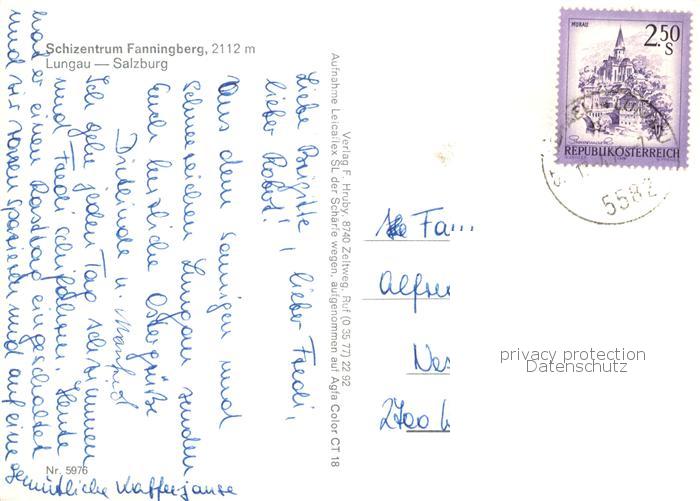 Schizentrum Fanningberg, 2112 m
Lungau — Salzburg
Liebe Brigitte, lieber Fredi,
lieber Robert!
Aus dem sonnigen und
schneereichen Lungau senden
Euch herzliche Ostergrüße
u. Manfred
Ich gehe jeden Tag schwimmen
und Fredi schifahren. Heute
hat er einen Rasttag eingeschaltet
und wir waren spazieren und auf eine
gemütliche Kaffeejause
Nr. 5976
Verlag F. Hruby, 8740 Zeltweg, Ruf (0 35 77) 22 92
Aufnahme Leicaflex SL der Schärfe wegen, aufgenommen auf Agfa Color CT 18
MURAU
2.50
S
REPUBLIK ÖSTERREICH
5582
Fa...
Alfre
2700
privacy protection
Datenschutz